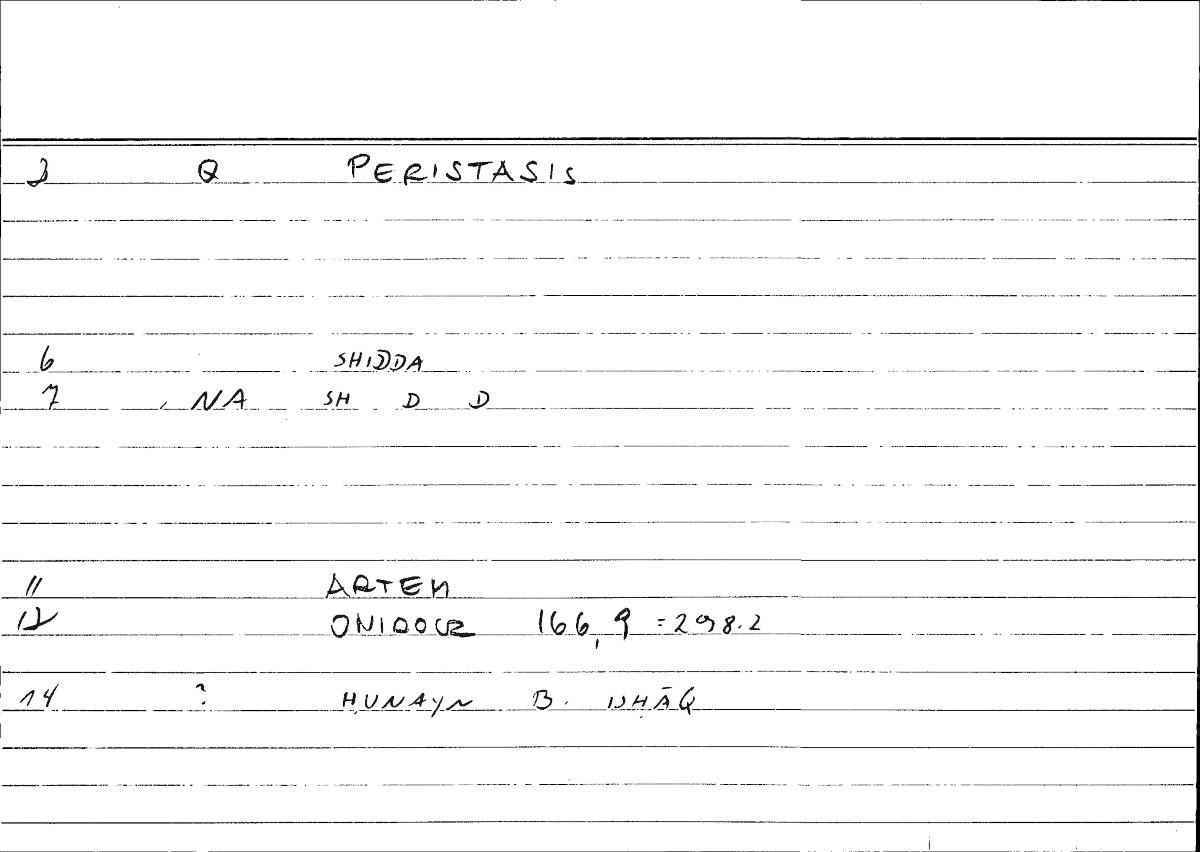 2 Q PERISTASIS
6 SHIDDA
7 NA SH D D
11 ARTEM
12 ONIROCR 166,9 =298.2
14 ? ḤUNAYN B. ISḤĀQ